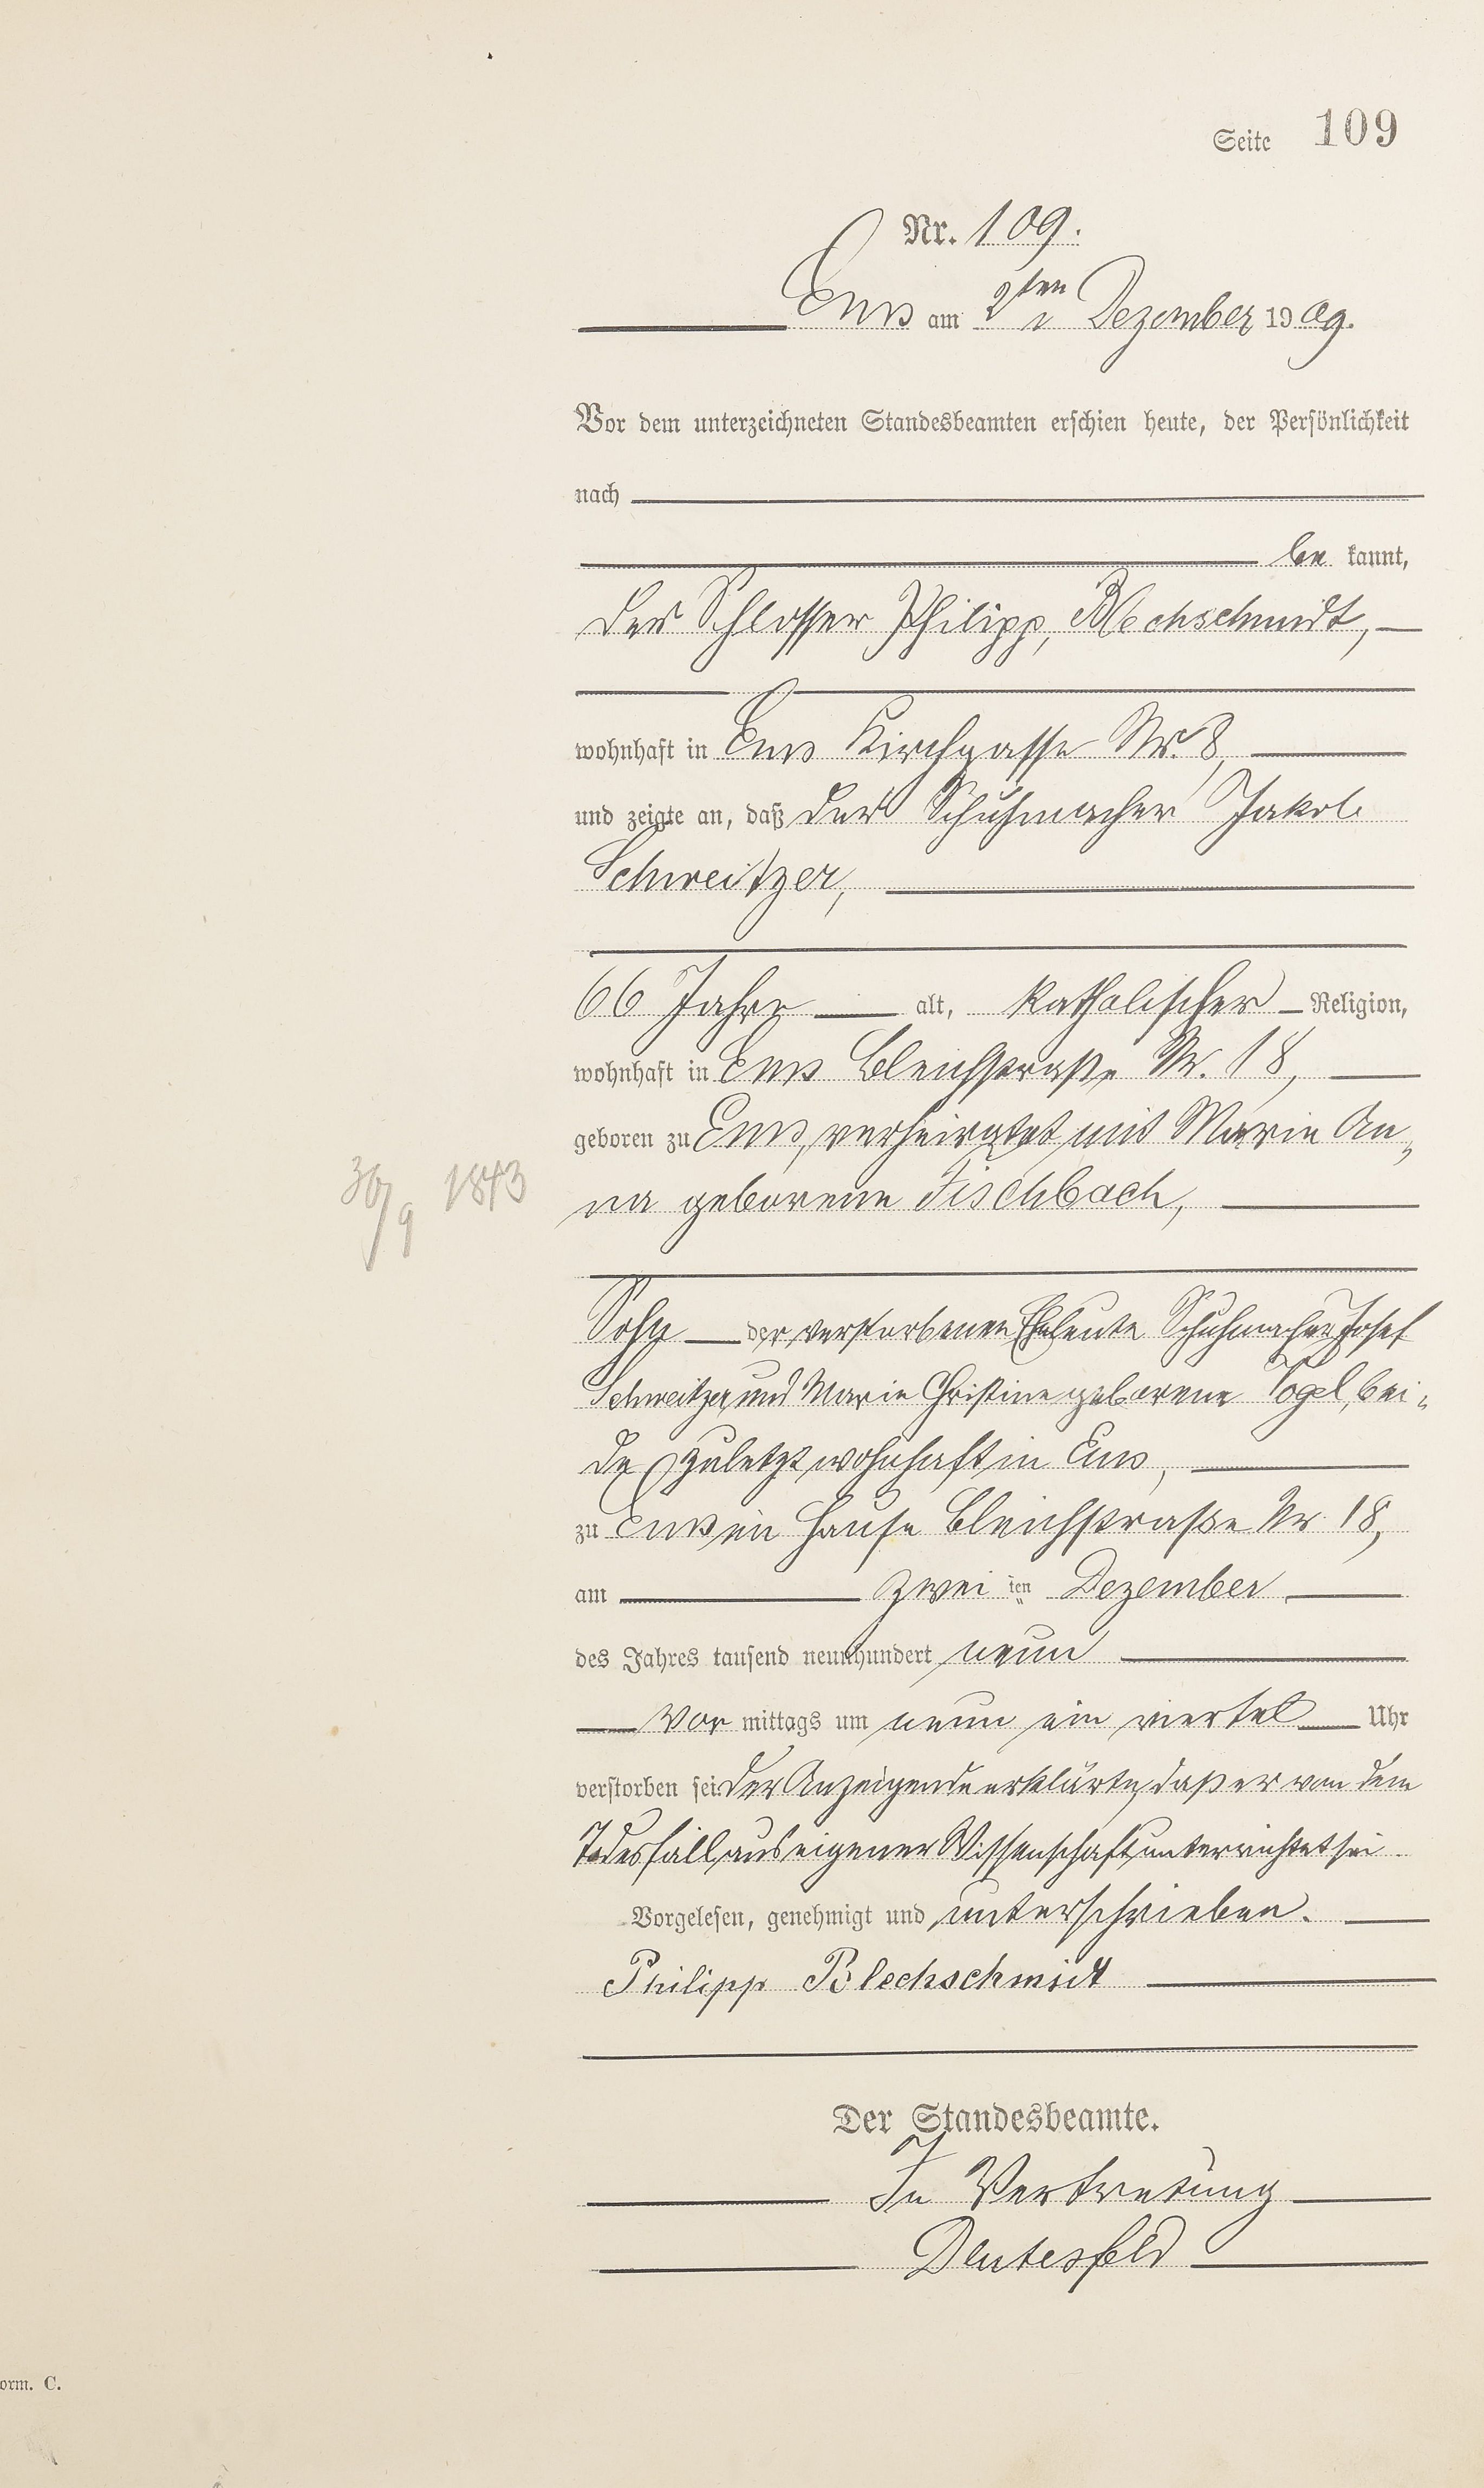 Seite 109
Nr. 109.
Ems am 2ten Dezember 1909.
Vor dem unterzeichneten Standesbeamten erschien heute, der Persönlichkeit
nach
be kannt,
der Schlosser Philipp, Blechschmidt,
wohnhaft in Ems Kirchgasse Nr. 8,
und zeigte an, daß der Schuhmacher Jakob
Schweitzer,
66 Jahre alt, katholischer Religion,
wohnhaft in Ems Bleichstraße Nr. 18,
geboren zu Ems, verheiratet mit Marie An„
30/9 1843
na geborene Fischbach,
Sohn der verstorbenen Eheleute Schuhmacher Josef
Schweitzer und Marie Christine geborene Vogel, bei„
de zuletzt wohnhaft in Ems,
zu Ems im Hause Bleichstraße Nr. 18,
am zwei ten Dezember
des Jahres tausend neunhundert neun
Vor mittags um neun ein viertel Uhr
verstorben sei. Der Anzeigende erklärte, daß er von dem
Todesfall aus eigener Wissenschaft unterrichtet sei
Vorgelesen, genehmigt und unterschrieben.
Philipp Blechschmidt
Der Standesbeamte.
In Vertretung
orm. C.